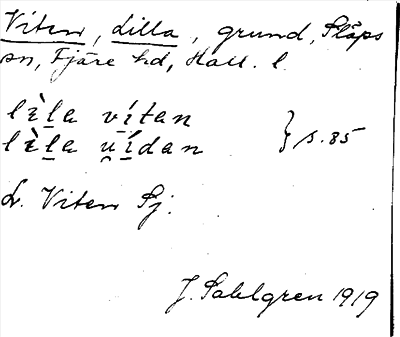 Viten, Lilla, grund, Släps
sn, Fjäre hd, Hall. l.
lὲla vítan
lὲla u̯ídan } s. 85
Lr. Viten Sj.
J. Sahlgren 1919